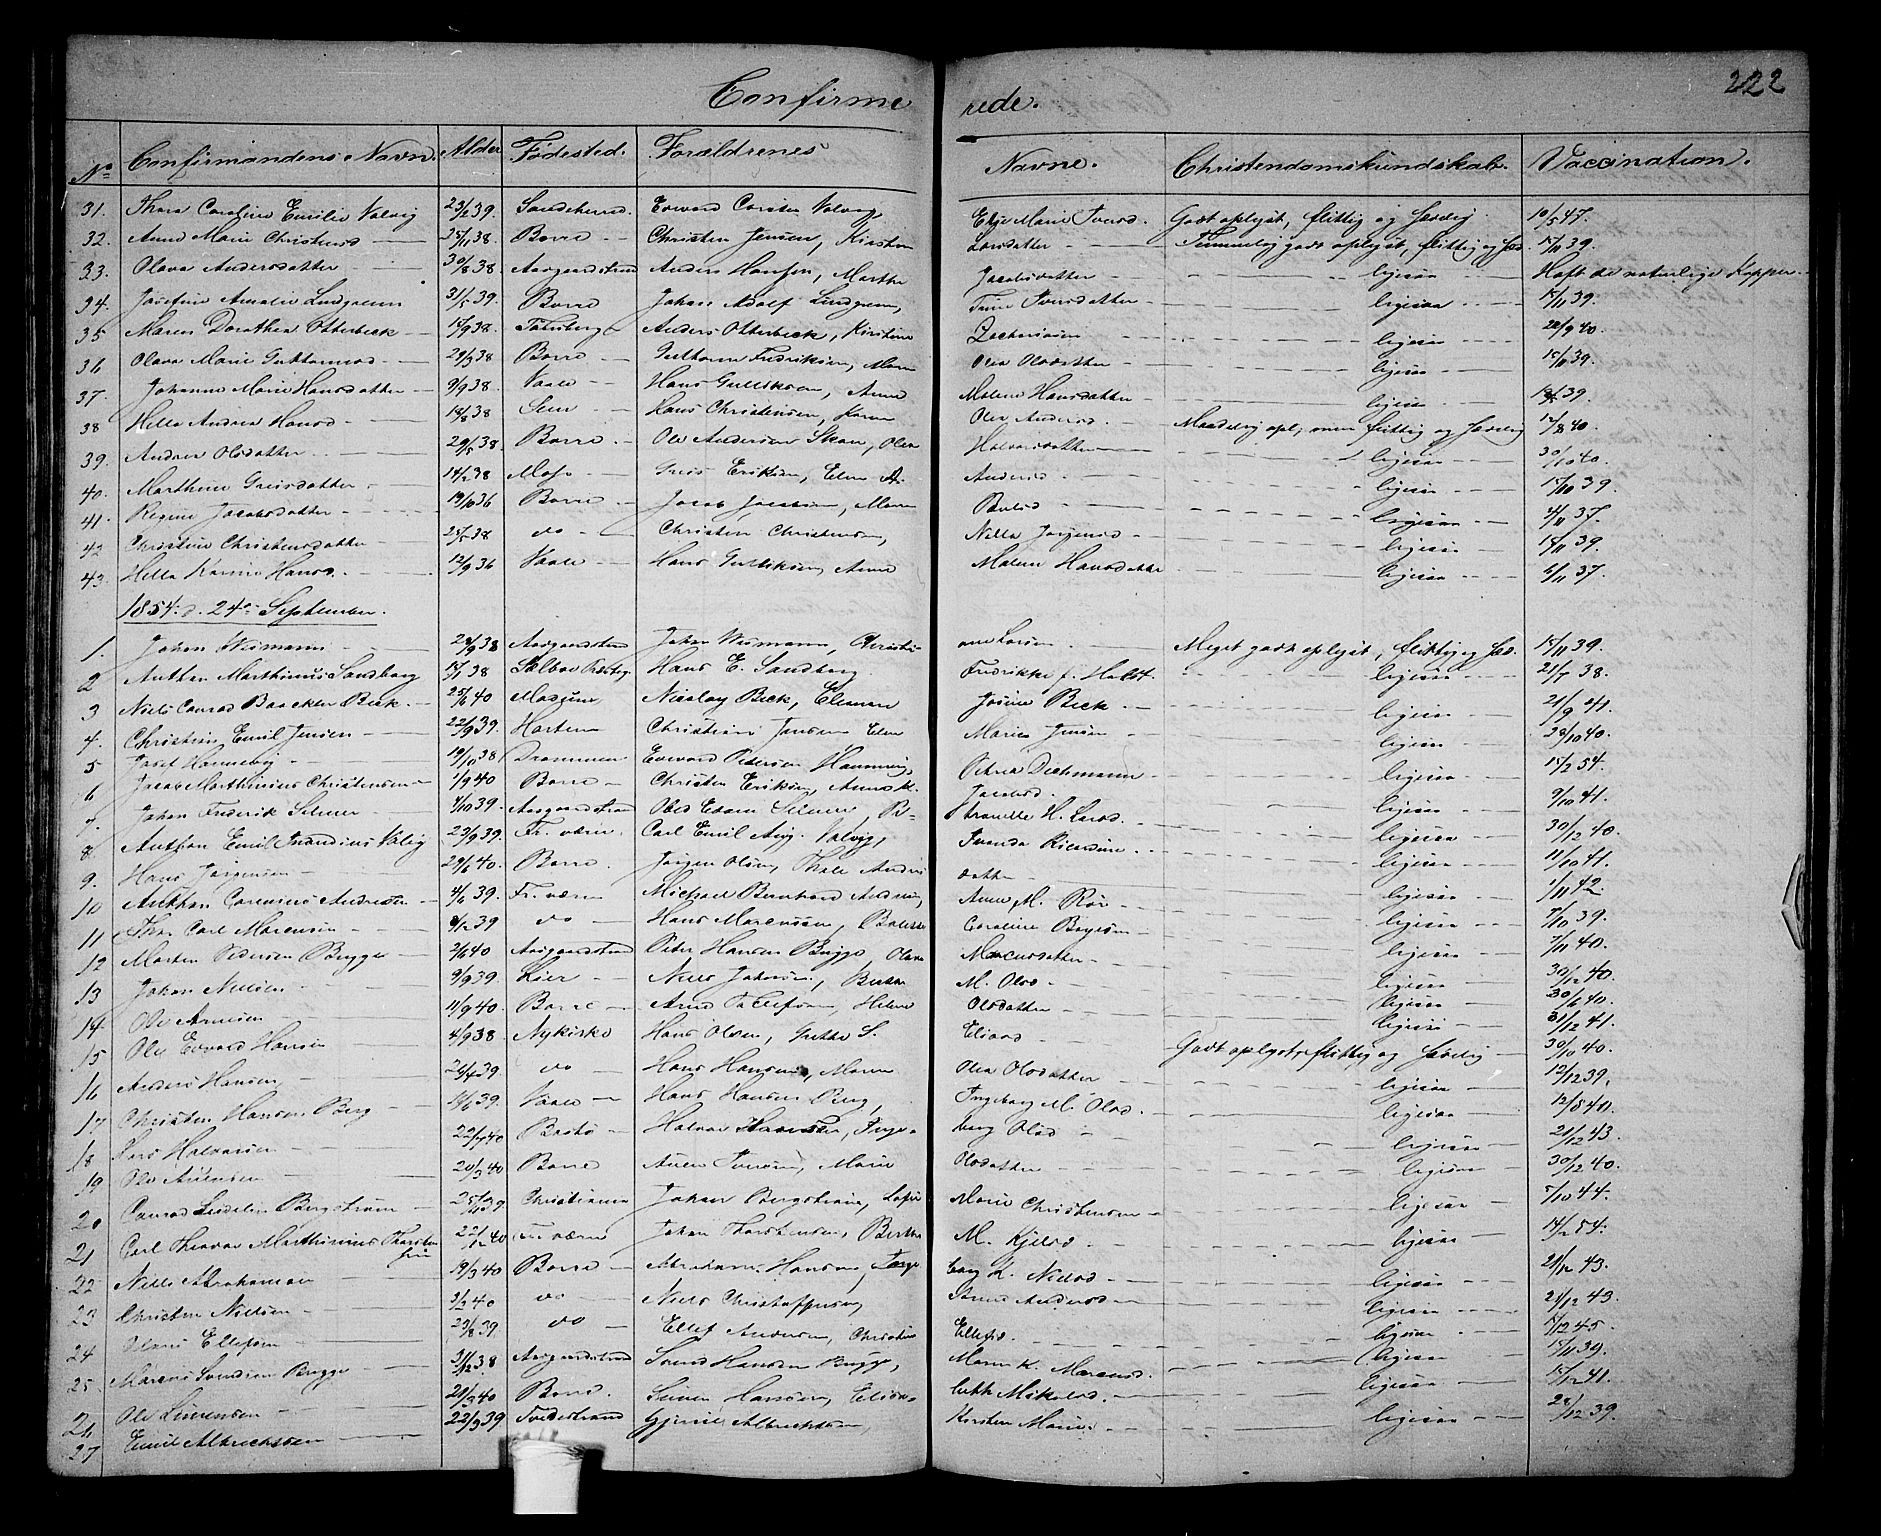 Confirmerede.
222
No Confirmandens Navn. Alder Fødested. Forældrenes Navne. Christendomskundskab. Vaccination.
31. Thora Caroline Emilie Valvig 23/2 39. Sandeherred. Edvard Carsten Valvig, Marie Iversd. Godt oplyst, flittig og sædelig. 10/5 47.
32. Anne Marie Christensd 25/11 38. Borre Christen Jensen, Kirsten Larsdatter Temmelig godt oplyst, flittig og sæd. 15/11 39.
33. Olava Andersdatter 30/8 38. Aasgaardstrand Anders Hansen, Marthe Jacobsdatter ligesaa Haft de naturlige Kopper
34. Josefine Amalie Lindgreen 31/5 39. Borre Johan Adolf Lindgreen, Trine Iversdatter ligesaa 15/11 39.
35 Maren Dorothea Otterbeck 15/9 38. Anders Otterbeck, Kirstine Zachariasen ligesaa 22/9 40.
36 Olava Marie Guttormsd 29/3 38 Borre Guttorm Fredriksen, Maren Olea Olsdatter ligesaa 15/11 39.
37. Johanne Marie Hansdatter 9/9 38. Vaale Hans Gulliksen, Anne Malene Hansdatter ligesaa 39.
38 Helle Andrea Hansd 18/8 38 Sem Hans Christensen, Karen Olea Andersd. Maadelig opl, men flittig og sædelig 12/8 40.
39. Andrea Olsdatter 29/5 38. Borre Ole Andersen Skau, Olea Halvorsdatter ligesaa 30/10 40.
40. Marthine Greisdatter 14/2 38 Moss Greis Eriksen, Elen A. Andersd ligesaa 15/10 39.
41. Regine Jacobsdatter 19/10 36 Borre Jacob Jacobsen, Maren ligesaa 4/11 37.
42 Christine Christensdatter 25/5 38 do Christen Christensen, Nille Jørgensd ligesaa 15/11 39.
43. Helle Karine Hansd. 12/9 36 Vaale Hans Gulliksen, Anne Malene Hansdatter ligesaa 6/11 37.
1854. d. 24de September.
1. Johan Wismann 28/9 38 Aasgaardstrand Johan Wismann, Christiane Larsen Meget godt oplyst, flittig og sæd. 15/11 39.
2 Anthon Marthinus Sandberg 15/1 38 Hans E. Sandberg Fredrikke f. Holst. ligesaa 21/7 38.
3 Niels Conrad Baacken Beck. 25/6 40 Modum Nicolay Beck, Elenore Josine Beck ligesaa 21/9 41.
4. Christian Emil Jensen 22/9 39. Horten Christian Jensen Elen Marie Jensen ligesaa 28/10 40.
5 Josef Hannevig 19/10 38 Drammen Edvard Petersen Hannevig, Petrea Dechmann ligesaa 15/2 54.
6 Jacob Marthinius Christensen 1/9 40 Borre Christen Eriksen, Anne M. Jacobsd. ligesaa 9/10 41.
7. Johan Frederik Selmer 4/10 39. Aasgaardstrand Selmer, H. Larsd. ligesaa 30/12 40.
8 Anthon Emil Valvig 23/9 39. Fr. værn. Carl Emil Aug. Valvig, ligesaa 11/10 41.
9. Hans Jørgensen 29/6 40. Borre Jørgen Olsen, Thale Andersdatter ligesaa 1/11 42.
10 Anthon Andersen 4/6 39. Fr. værn Michael Bernhard Andersen, Anne M. Rør ligesaa 7/10 39.
11 Carl Marensin 8/12 39 do Hans Caroline Bøyesen ligesaa 7/11 40.
12 Morten Pedersen Brygge 2/6 40 Aasgaardstrand Peter Hansen Brygge, Olava Marcusdatter ligesaa 30/12 40.
13 Johan Nilsen 9/9 39. Lier Niels Johnsen, M. Olsd ligesaa 30/6 40.
14 Ole Arnesen 11/9 40. Borre Arne Tollefsen, Helene Olsdatter ligesaa 31/12 41.
15 Ole Edvard Hansen 4/9 38 Nykirke Hans Olsen, S. Eliasd Godt oplyst, flittig og sædelig 30/10 40.
16 Anders Hansen 26/4 39. do Hans Hansen, Maren Olea Olsdatter ligesaa 12/12 39.
17 Christen Hansen Berg 14/6 39. Vaale Hans Hansen Berg, Ingeborg M. Olsd. ligesaa 12/8 40.
18 Lars Halvorsen 22/7 40 Bastø Halvor Ingeborg Olsd ligesaa 21/12 43.
19 Ole Anensen 20/3 40 Borre Anen Iversen, Marie Olsdatter ligesaa 30/12 40.
20 Conrad Bergstrøm 25/11 39. Christiania Johan Bergstrøm, Marie Christensen ligesaa 5/10 44.
21 Carl Theodor Marthinius Thorstensen 22/12 40 Fr. værn Johan Thorstensen, Berthe M. Kjelsd. ligesaa 14/2 54.
22 Niels Abrahamsen 19/3 40 Borre Abraham Hansen, Ingeborg K. Nielsd ligesaa 21/12 43.
23 Christen Nielsen 3/2 40 do Niels Christoffersen, Anne Andersd ligesaa 21/12 43.
24 Hans Ellefsen 23/8 39. do Ellef Andersen, Christine Ellefsd. ligesaa 15/12 45.
25. Marens Svendsen Brygge 31/12 38 Aasgaardstrand Svend Hansen Brygge, Maren K. Marensd. ligesaa 15/11 39.
26 Ole Simensen 20/3 40 Borre. Simen Hansen, Elisabeth Mikelsd. ligesaa 15/12 41.
27 Emil Albrechtsen 22/9 39. Tvedestrand Albrechtsen, Kirsten Marie ligesaa 28/12 39.